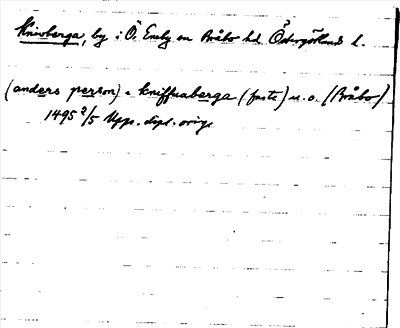 Knivberga, by i Ö. Eneby sn Bråbo hd Östergötlands l.
(anders person) a kniffuaberga (faste) u. o. (Bråbo)
1495 2/5 Upp. dipl. orig.